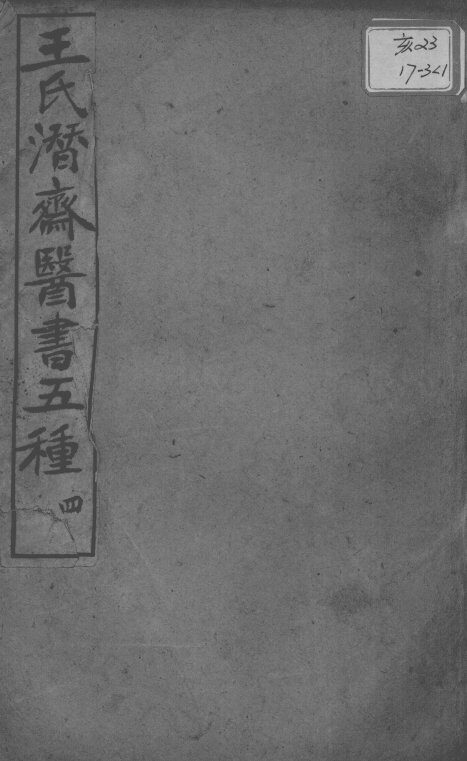 王氏潛齋醫書五種
四
亥23
17-341